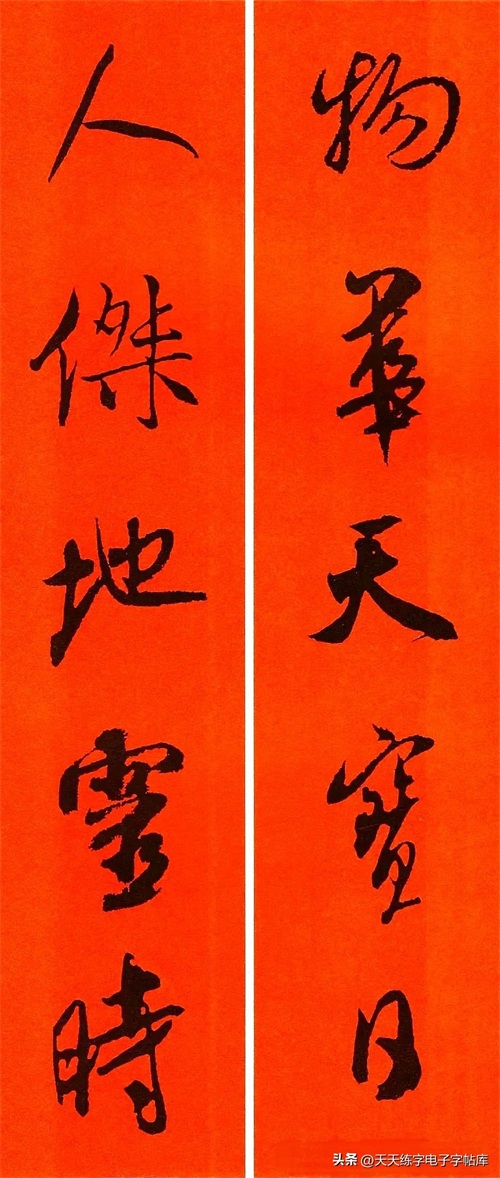 物華天寶日
人傑地靈時
头条 @天天练字电子字帖库